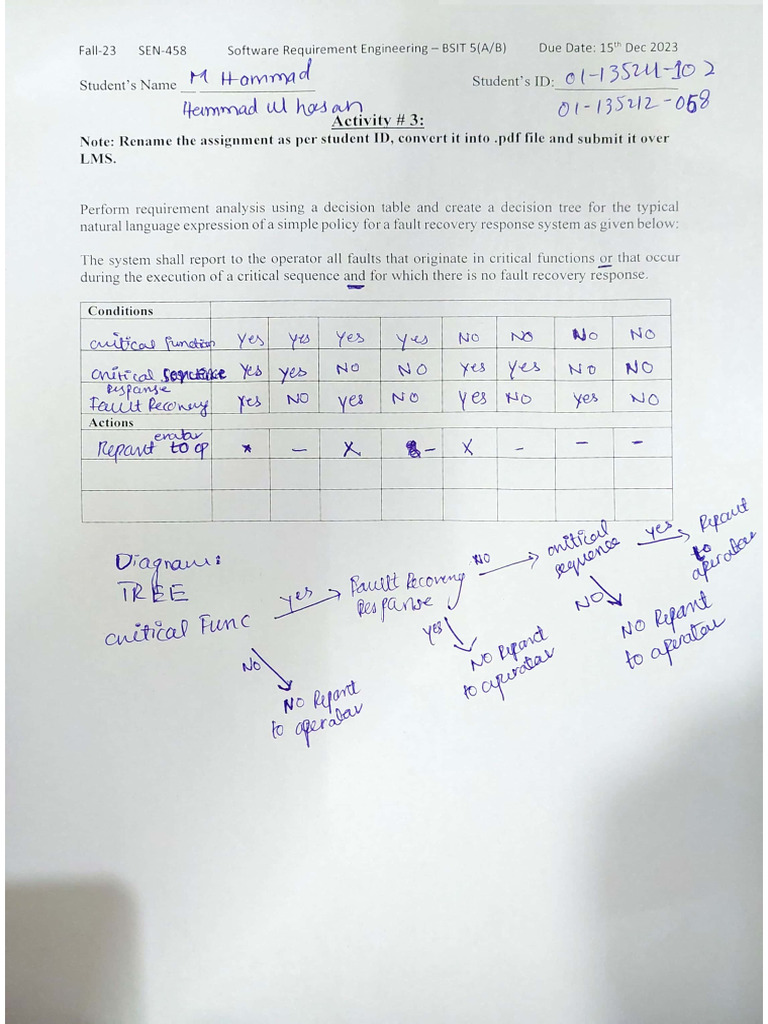 Fall-23 SEN-458 Software Requirement Engineering – BSIT 5(A/B) Due Date: 15th Dec 2023
Student's Name M Hammad Student's ID: 01-135211-102
Hammad ul hasan 01-135212-058
Activity # 3:
Note: Rename the assignment as per student ID, convert it into .pdf file and submit it over
LMS.
Perform requirement analysis using a decision table and create a decision tree for the typical
natural language expression of a simple policy for a fault recovery response system as given below:
The system shall report to the operator all faults that originate in critical functions or that occur
during the execution of a critical sequence and for which there is no fault recovery response.
Conditions
critical function Yes Yes Yes Yes NO NO NO NO
critical sequence Yes Yes NO NO Yes Yes NO NO
Response
Fault Recovery Yes NO Yes NO Yes NO Yes NO
Actions
Repant to operator x – X – X – – –
Diagram:
TREE
critical Func
Yes
Fault Recovery
Response
NO
critical
sequence
Yes
Repant
to
operator
NO
NO Repant
to operator
Yes
NO Repant
to operator
NO
NO Repant
to operator